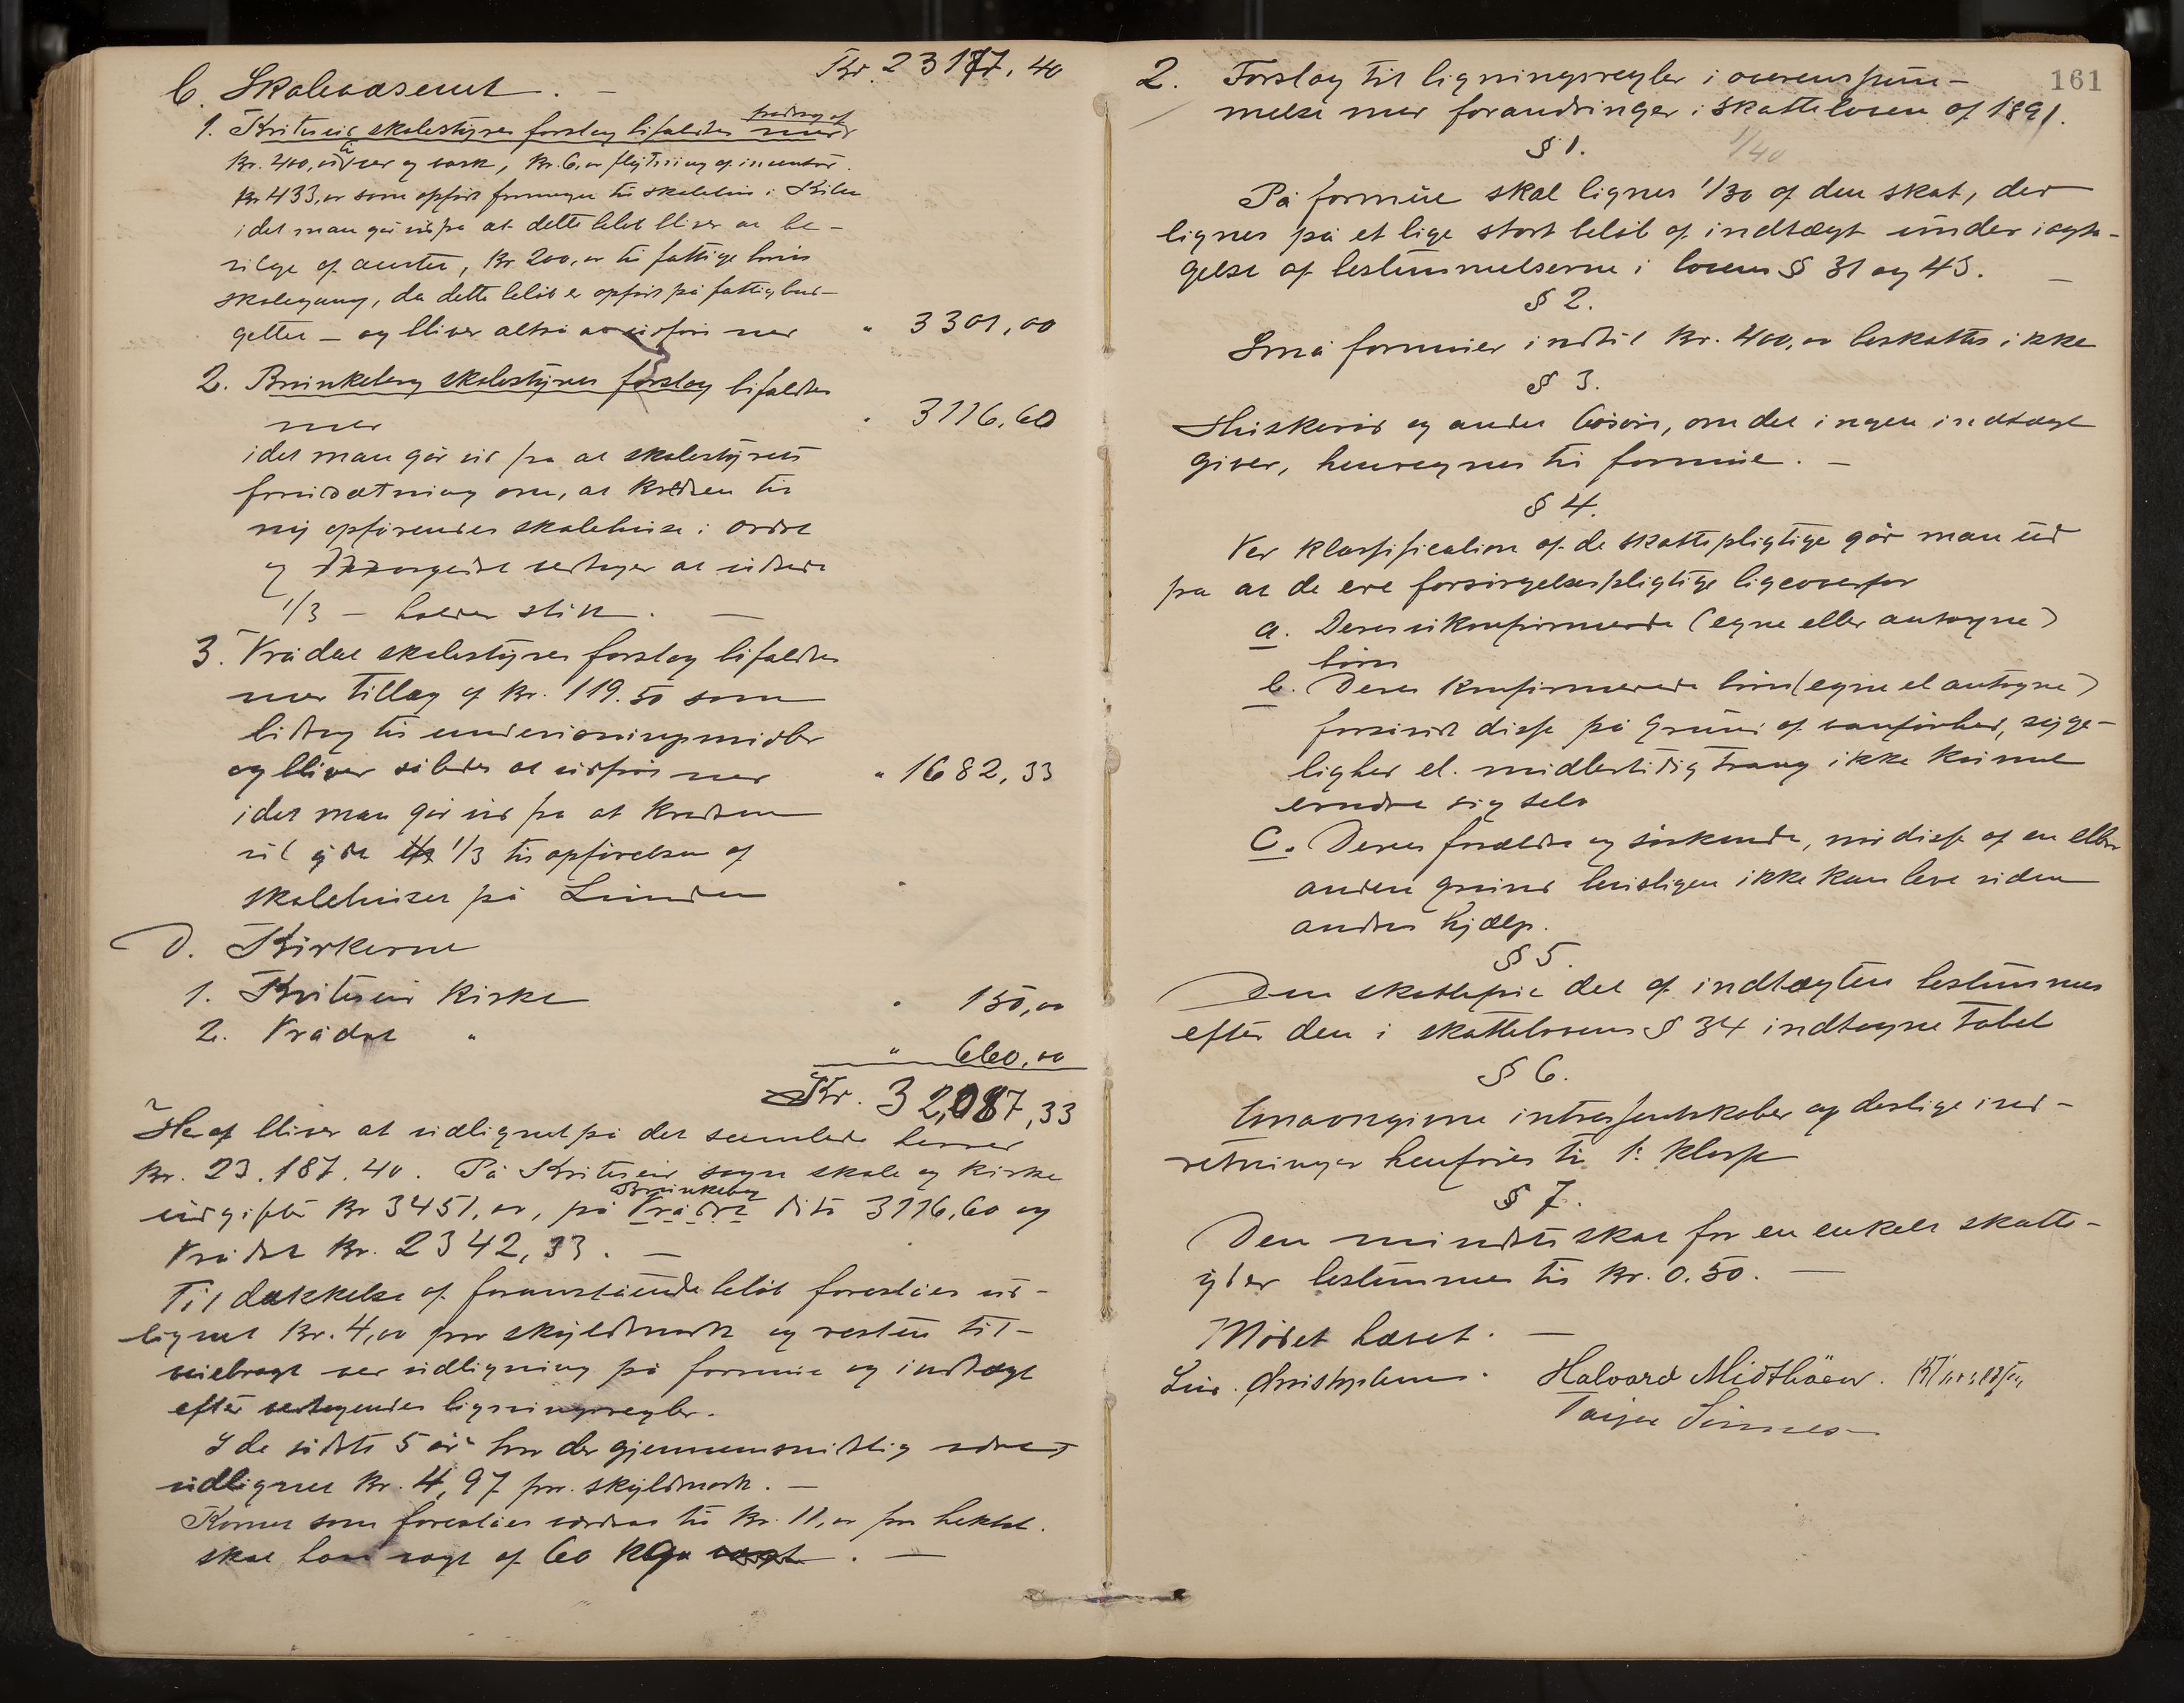 Kr. 23177,40
C. Skolevæsenet. —
1. Kviteseid skolestyres forslag bifaldtes fradrag af med
Kr. 400,00 til ver og vask, Kr. 6,00 flytning af inventar.
Kr 433,00 som opført formeget til skolehus i Kilen
idet man går ud fra at dette beløb bliver at be-
vilge af amtet, Kr 200,00 til fattige børns
skolegang, da dette beløb er opført på fattigbud-
gettet — og bliver altså at udføre med " 3301,00
2. Brunkeberg skolestyres forslag bifaldtes
med " 3116,60
idet man går ud fra at skolestyrets
forudsætning om, at kredsen til
ny opførendes skolehuse i
og vedtager at udrede
1/3 — holder stik. —
3. Vrådal skolestyres forslag bifaldtes
med tillæg af Kr. 119.50 som
bidrag til undervisningsmidler
og bliver således at udføre med " 1682,33
idet man går ud fra at kredsen
vil yde 1/3 til opførelsen af
skolehuset på Lunden "
D. Kirkerne
1. Kviteseid Kirke " 150,00
2. Vrådal " " 660,00
Kr. 32,087,33
Heraf bliver at udlignet på det samlede herred
Kr. 23.187.40. På Kviteseid sogns skole og kirke
udgifter Kr 3451,00, på Brunkeberg Vrådal dito 3116,60 og
Vrådal Kr. 2342,33. —
Til dækkelse af foranstående beløb foreslåes ud-
lignet Kr. 4,00 pr skyldmark og resten til-
veiebragt ved udligning på formue og indtægt
efter vedtagendes ligningsregler.
I de sidste 5 år har der gjennemsnitlig været
udlignet Kr. 4,97 pr. skyldmark. —
Kornet som foreslåes værdsat til Kr. 11,00 pr hektol.
skal have vægt af 60 kg. —
161
2. Forslag til ligningsregler i overensstem-
melse med forandringer i skatteloven af 1891.
§ 1. 1/40
På formue skal lignes 1/30 af den skat, der
lignes på et lige stort beløb af indtægt under iagta-
gelse af bestemmelserne i lovens § 31 og 43. —
§ 2.
Små formuer indtil Kr. 400,00 beskattes ikke
§ 3.
Huskeråd og andet løsøre, om det ingen indtægt
giver, henregnes til formue. —
§ 4.
Ved klassification af de skattepligtige går man ud
fra at de ere forsørgelsespligtige ligeoverfor
a. Deres ukonfirmerede (egne eller antagne)
børn
b. Deres konfirmerede børn (egne el antagne)
forsåvidt disse på grund af vanførhed, syge-
lighed el. midlertidig trang ikke kunne
ernære sig selv
C. Deres forældre og søskende, når disse af en eller
anden grund beviisligen ikke kan leve uden
andres hjælp.
§ 5.
Den skattefrie del af indtægten bestemmes
efter den i skattelovens § 34 indtagne Tabel
§ 6.
Unavngivne intressentskaber og deslige ind-
retninger henføres til 1. klasse
§ 7.
Den mindste skat for en enkelt skatte-
yder bestemmes til Kr. 0.50. —
Mødet hævet. —
Halvard Midthåen.